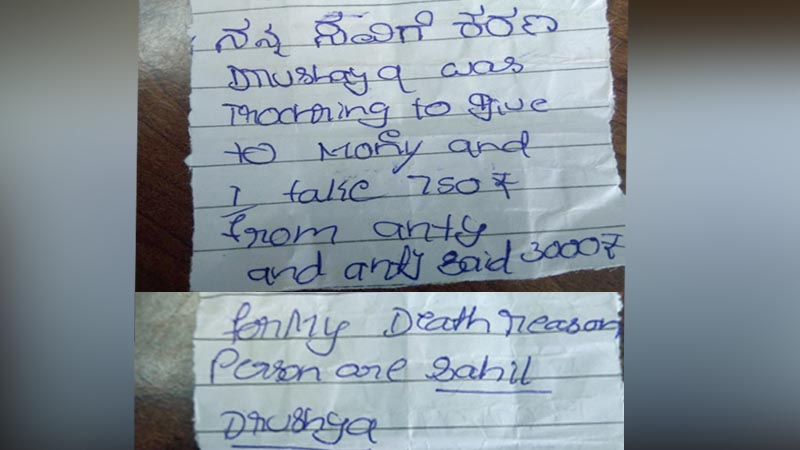 ನನ್ನ ಸಾವಿಗೆ ಕರಣ
Drushaya was
Thochring to give
to Money and
I take 750₹
from anty
and anty said 3000₹
for My Death reason
Person are Sahil
Drushya